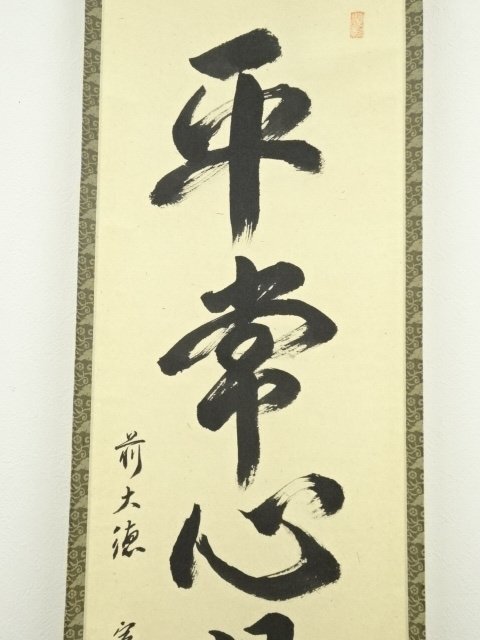 平常心
前大德